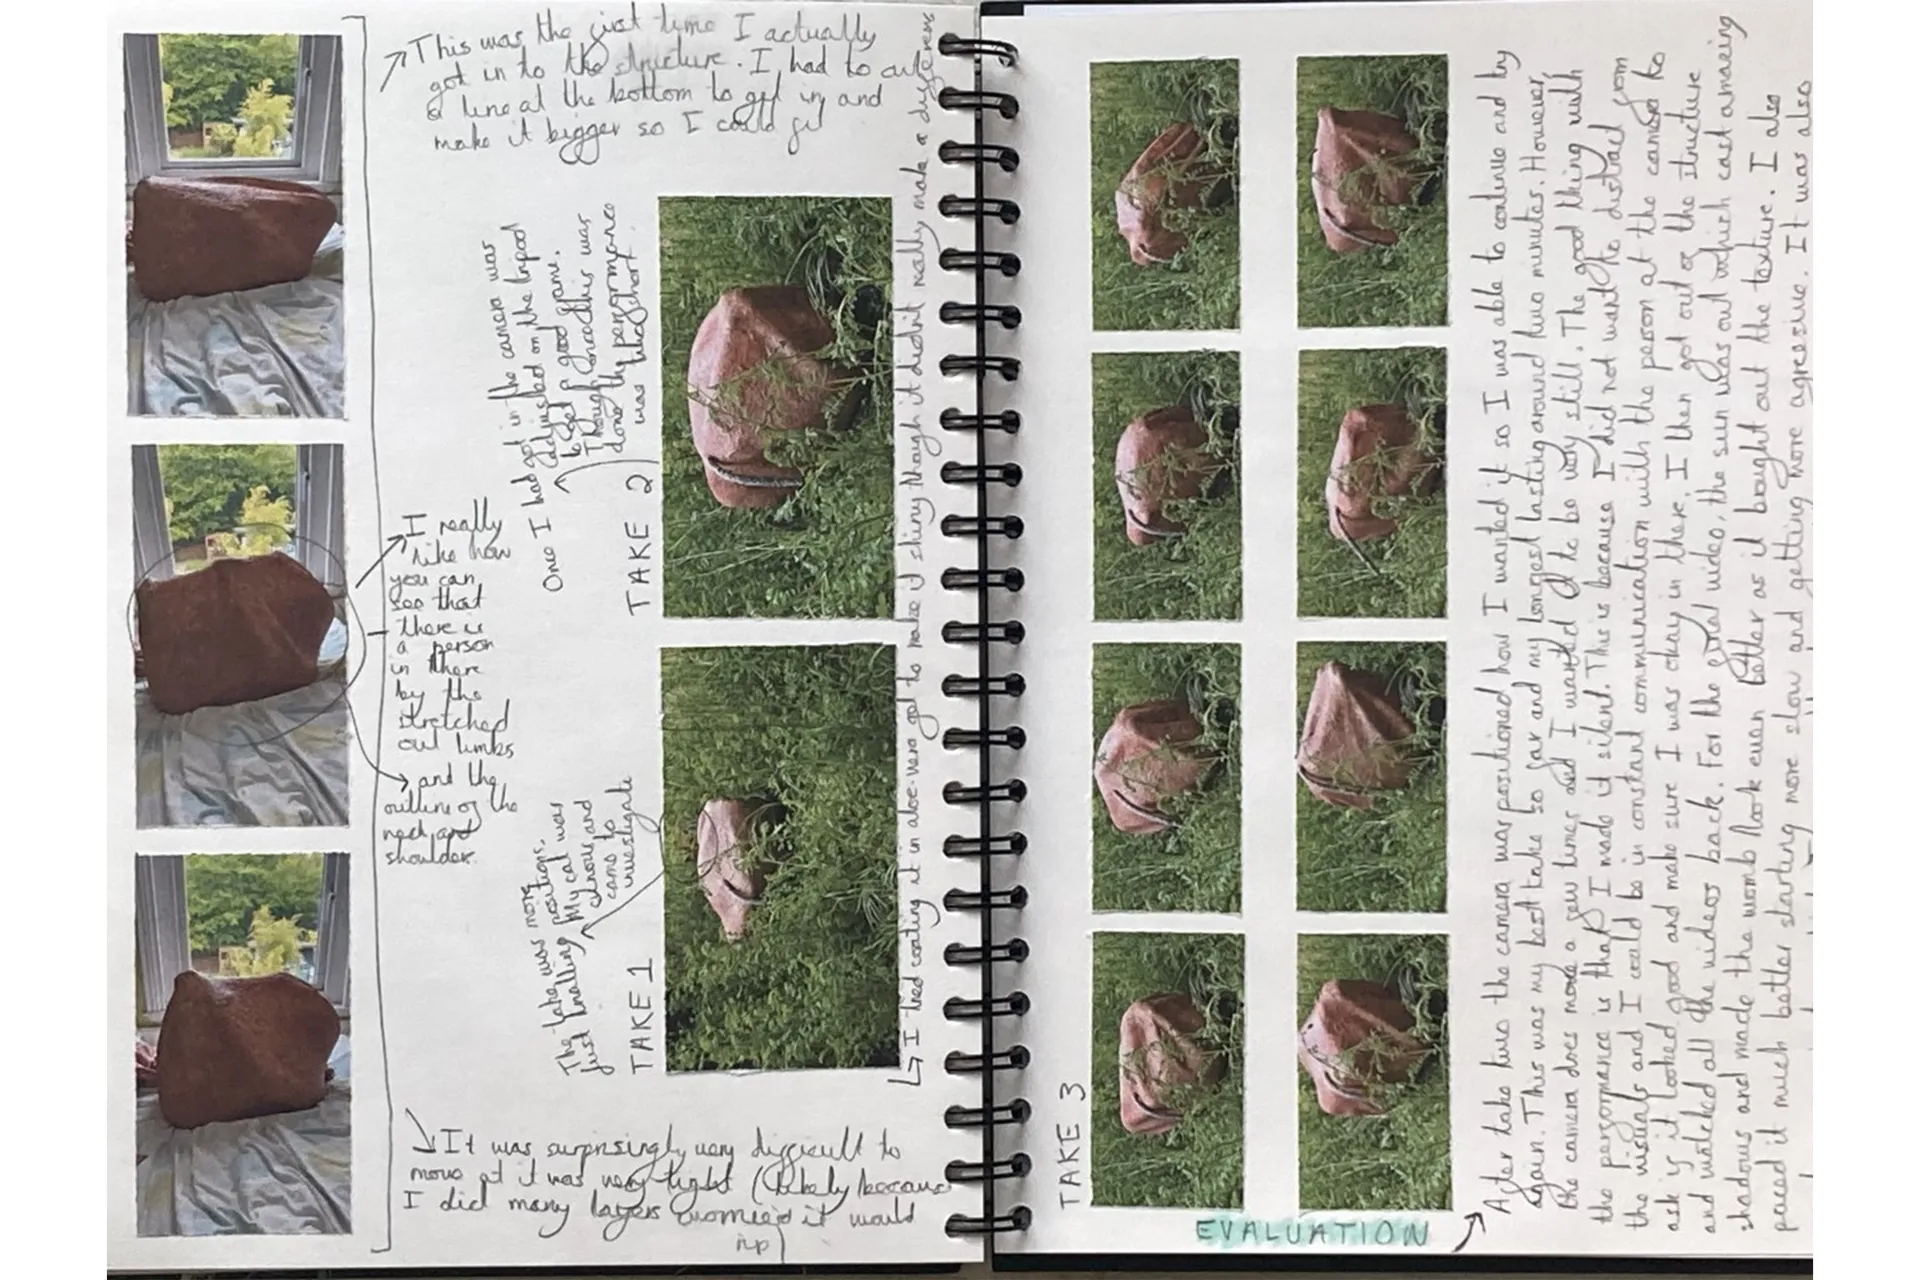 This was the first time I actually
got in to the structure. I had to cut
a line at the bottom to get in and
make it bigger so I could fit
I really
like how
you can
see that
there is
a person
in there
by the
stretched
out limbs
and the
outline of the
neck and
shoulder.
It was surprisingly very difficult to
move at it was very tight (likely because
I did many layers it would
rip)
Once I had got in the camera was
adjusted on the tripod
to get a good frame.
Though another was
done the performance
was short.
TAKE 2
The take was more
just finalling positions.
My cat was
curious and
came to
investigate
TAKE 1
I tried coating it in aloe-vera gel to make it shiny though it didn't really make a difference
TAKE 3
EVALUATION
After take two the camera was positioned how I wanted it so I was able to continue and try
again. This was my best take so far and my longest lasting around two minutes. However,
the camera does move a few times and I wanted it to be very still. The good thing with
the performance is that I made it silent. This is because I did not want to distract from
the visuals and I could be in constant communication with the person at the camera to
ask if it looked good and make sure I was okay in there. I then got out of the structure
and watched all the videos back. For the final video, the sun was out which cast amazing
shadows and made the womb look even better as it bought out the texture. I also
paced it much better starting more slow and getting more agressive. It was also